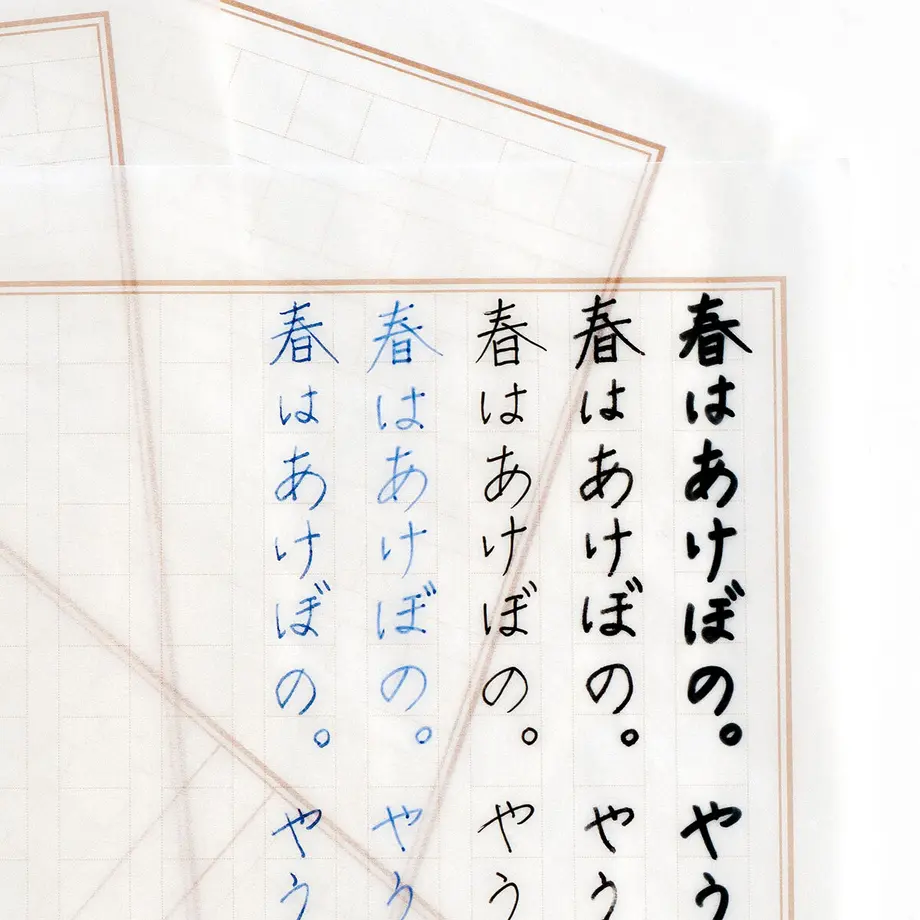 春はあけぼの。やう
春はあけぼの。やう
春はあけぼの。やう
春はあけぼの。やう
春はあけぼの。やう